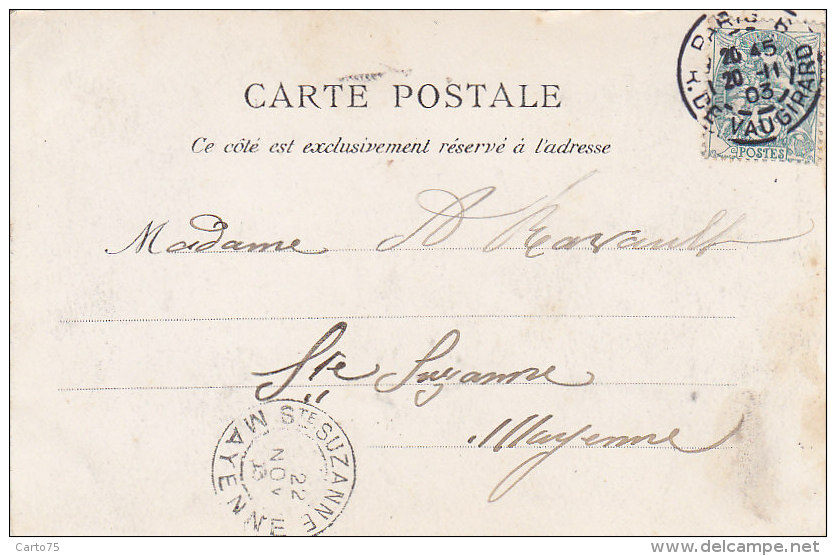 PARIS
20 45
20 -11
03
R. DE VAUGIRARD
POSTES
CARTE POSTALE
Ce côté est exclusivement réservé à l'adresse
Madame A Ravault
Ste Suzanne
Mayenne
STE SUZANNE
22
NOV
MAYENNE
Carto75
www.delcampe.net